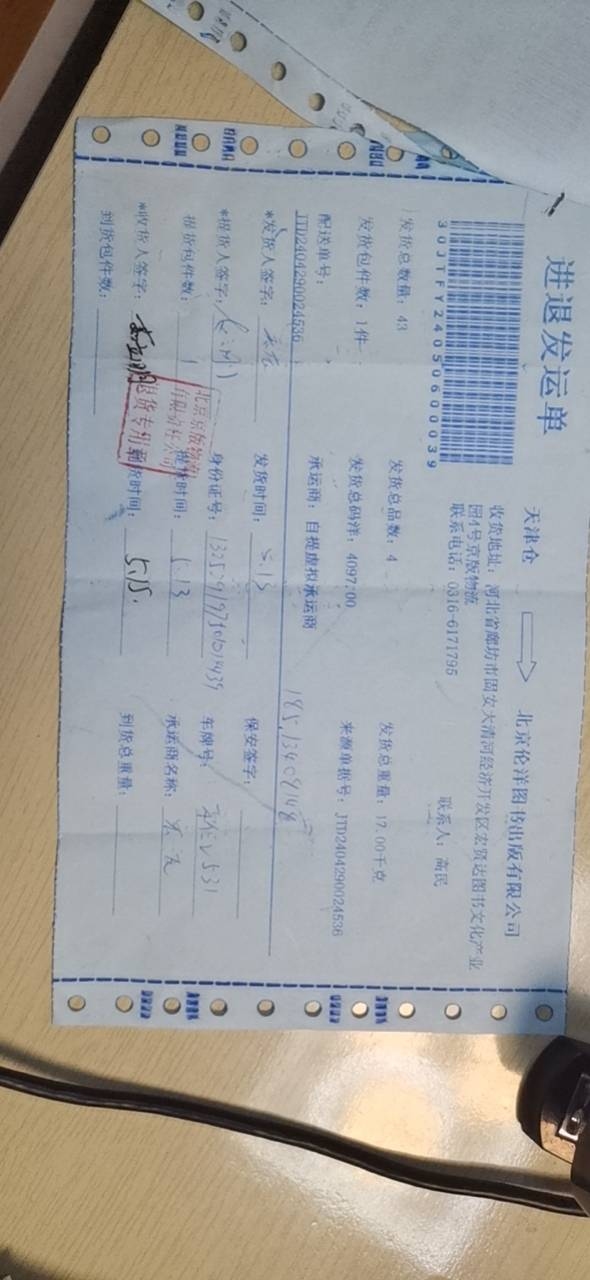 进退发运单
天津仓 北京伦洋图书出版有限公司
收货地址：河北省廊坊市固安大清河经济开发区宏贤达图书文化产业
园4号京版物流
联系电话：0316-6171795 联系人：高民
30JTFY240506000039
发货总数量：43 发货总品数：4 发货总重量：17.00千克
发货包件数：1件 发货总码洋：4097.00 来源单据号：JTD2404290024536
配送单号： 承运商：自提虚拟承运商
JTD2404290024536
*发货人签字： 发货时间：5.13 保安签字：
*提货人签字： 身份证号： 车牌号：
提货包件数：1 提货时间：5.13 承运商名称：
*收货人签字： 货时间：5.15. 到货总重量：
到货包件数：
北京京版物流
有限责任公司
退货专用章